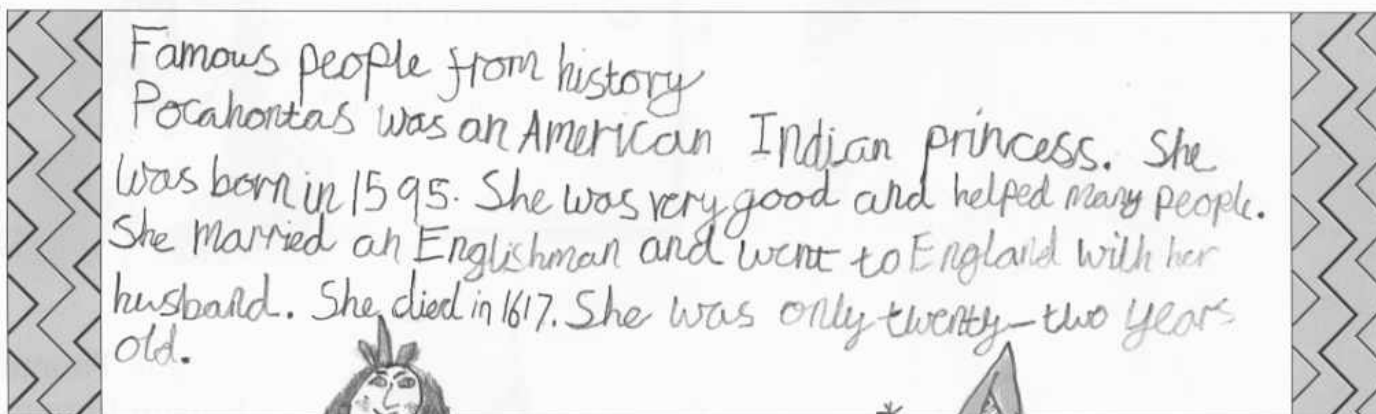 Famous people from history
Pocahontas was an American Indian princess. She
was born in 1595. She was very good and helped many people.
She married an Englishman and went to England with her
husband. She died in 1617. She was only twenty-two years
old.